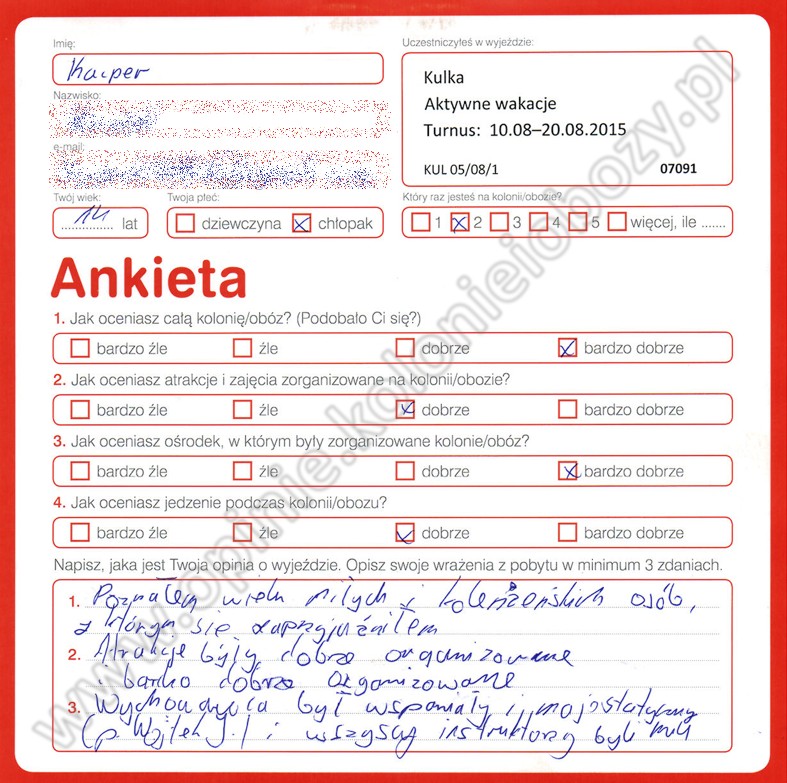 Imię:
Kacper
Nazwisko:
e-mail:
Twój wiek:
14 lat
Twoja płeć:
dziewczyna chłopak
Uczestniczyłeś w wyjeździe:
Kulka
Aktywne wakacje
Turnus: 10.08–20.08.2015
KUL 05/08/1 07091
Który raz jesteś na kolonii/obozie?
1 2 3 4 5 więcej, ile .......
Ankieta
1. Jak oceniasz całą kolonię/obóz? (Podobało Ci się?)
bardzo źle źle dobrze bardzo dobrze
2. Jak oceniasz atrakcje i zajęcia zorganizowane na kolonii/obozie?
bardzo źle źle dobrze bardzo dobrze
3. Jak oceniasz ośrodek, w którym były zorganizowane kolonie/obóz?
bardzo źle źle dobrze bardzo dobrze
4. Jak oceniasz jedzenie podczas kolonii/obozu?
bardzo źle źle dobrze bardzo dobrze
Napisz, jaka jest Twoja opinia o wyjeździe. Opisz swoje wrażenia z pobytu w minimum 3 zdaniach.
1. Poznałem wielu miłych i koleżeńskich osób,
z którym się zaprzyjaźniłem
2. Atrakcje były dobrze organizowane
i bardzo dobrze organizowane
3. Wychowawca był wspaniały i
(p. Wojtek J.) i wszyscy instruktorzy byli mili
www.opinie.kolonieiobozy.pl